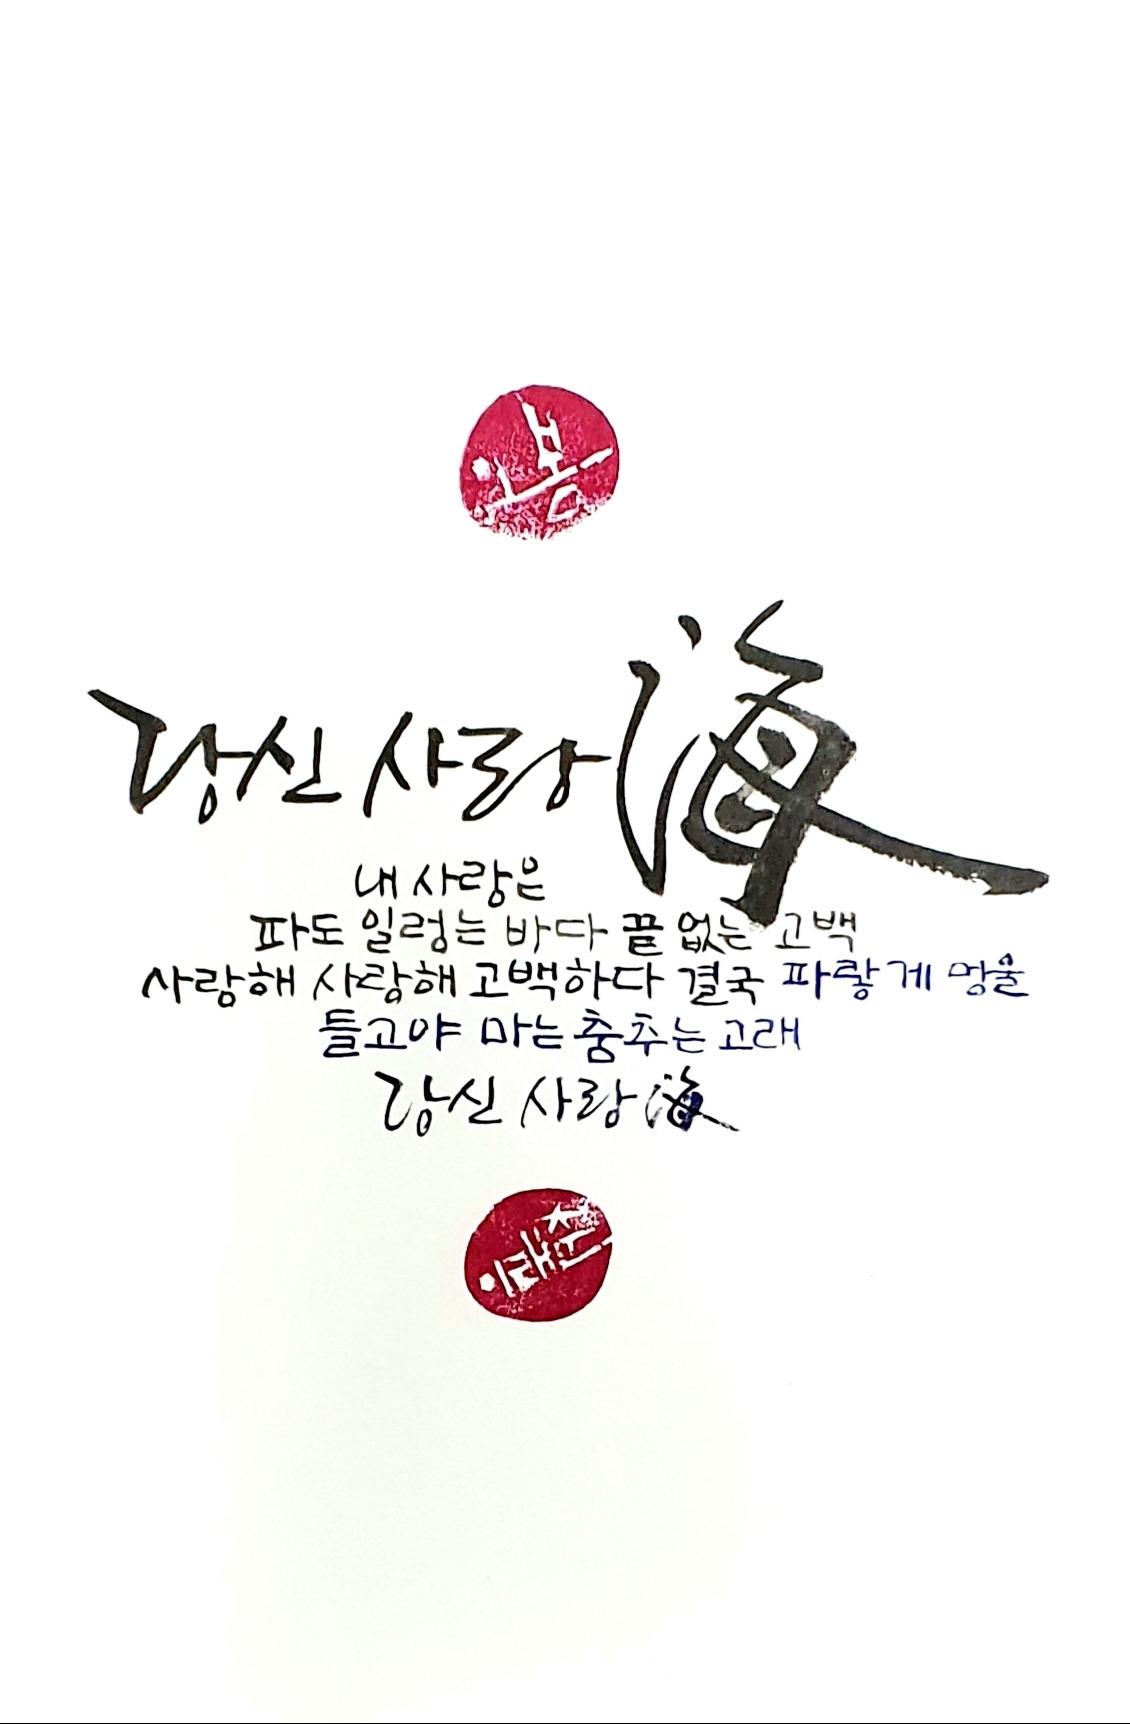 봄
당신 사랑海
내 사랑은
파도 일렁는 바다 끝 없는 고백
사랑해 사랑해 고백하다 결국 파랗게 멍울
들고야 마는 춤추는 고래
당신 사랑海
이래춘